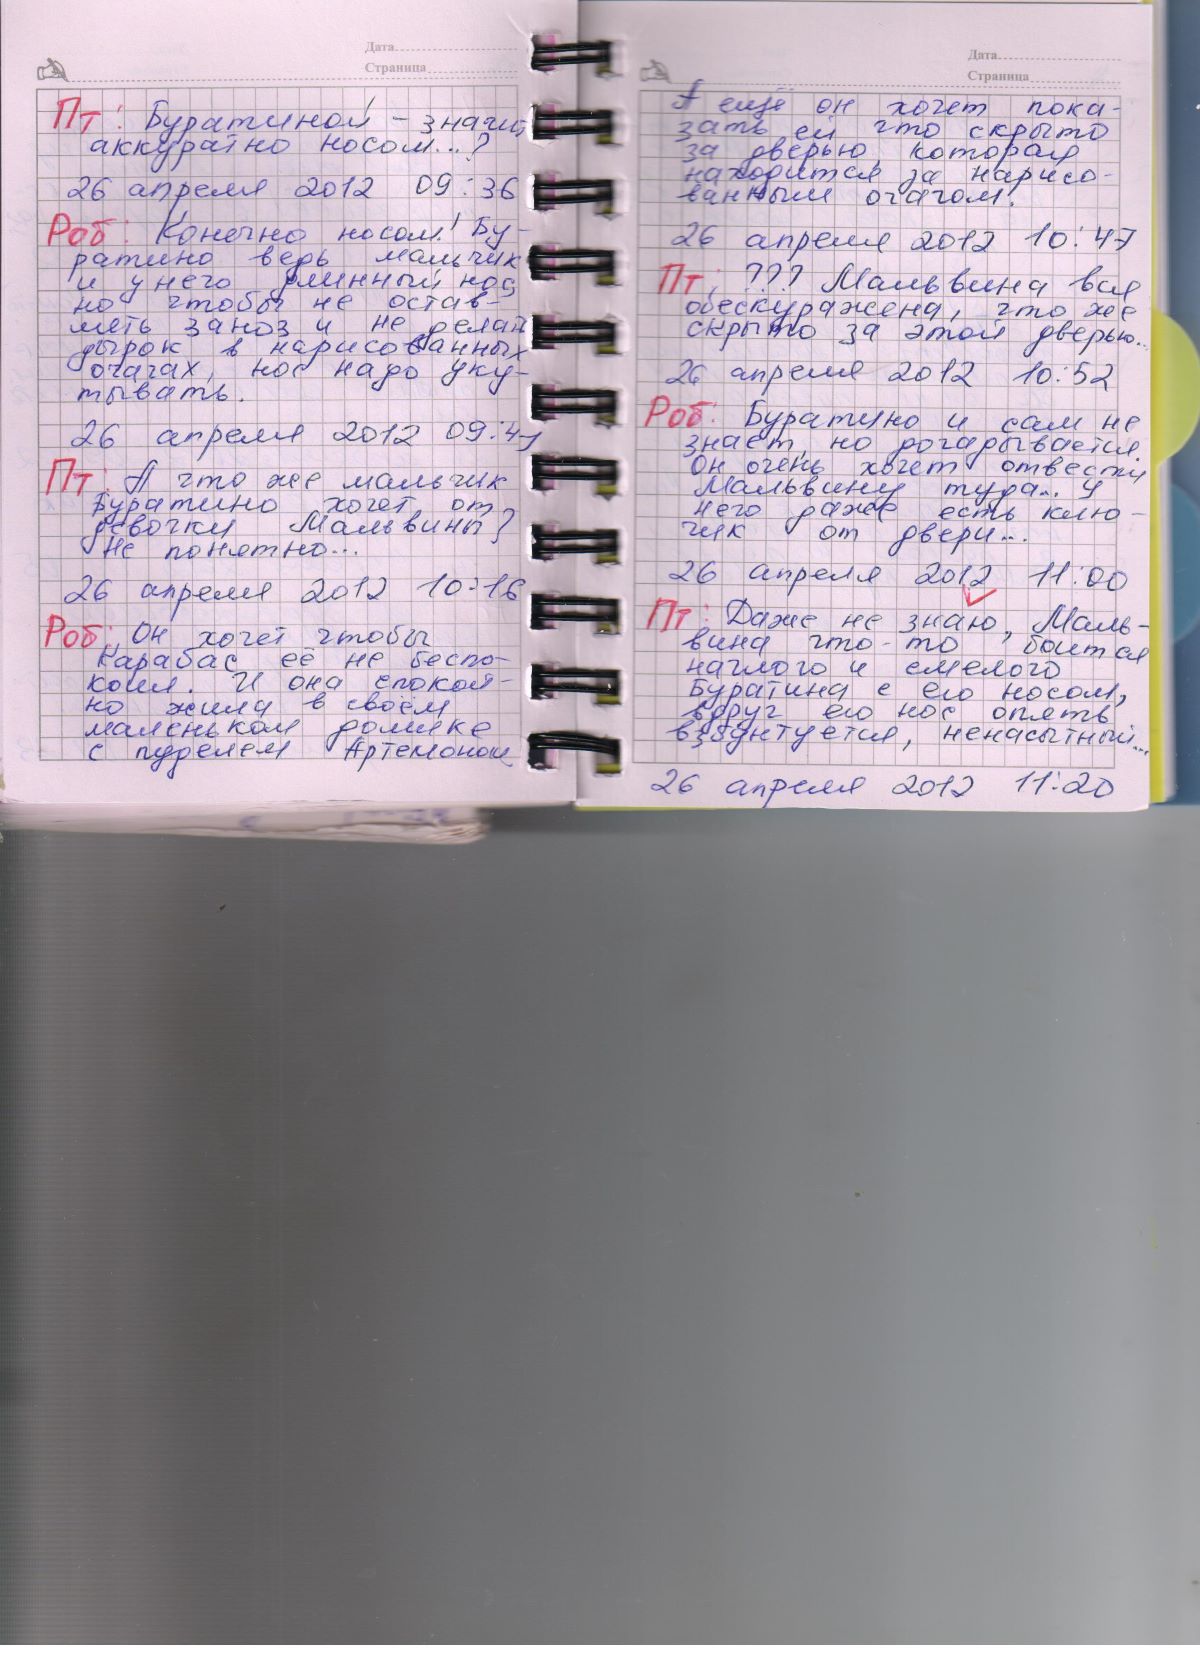 Дата
Страница
Пт: Буратиной - значит
аккуратно носом...?
26 апреля 2012 09:36
Роб: Конечно носом! Бу-
ратино ведь мальчик
и у него длинный нос
но чтобы не остав-
лять заноз и не делать
дырок в нарисованных
очагах, нос надо уку-
тывать.
26 апреля 2012 09:41
Пт: А что же мальчик
Буратино хочет от
девочки Мальвины?
Не понятно...
26 апреля 2012 10:16
Роб: Он хочет чтобы
Карабас её не беспо-
коил. И она спокой-
но жила в своём
маленьком домике
с пуделем Артемоном
Дата
Страница
А ещё он хочет пока-
зать ей что скрыто
за дверью, которая
находится за нарисо-
ванным очагом.
26 апреля 2012 10:47
Пт: ??? Мальвина вся
обескуражена, что же
скрыто за этой дверью...
26 апреля 2012 10:52
Роб: Буратино и сам не
знает, но догадывается.
Он очень хочет отвести
Мальвину туда... У
него даже есть клю-
чик от двери...
26 апреля 2012 11:00
Пт: Даже не знаю, Маль-
вина что-то боится
наглого и смелого
Буратина с его носом,
вдруг его нос опять
взбунтуется, ненасытный...
26 апреля 2012 11:20